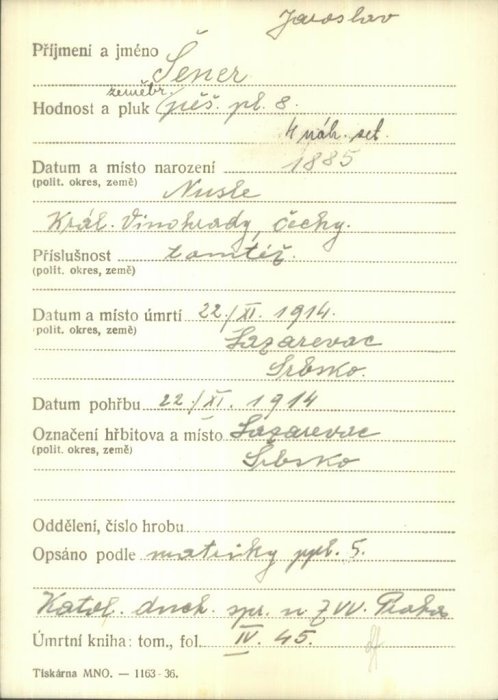 Jaroslav
Příjmení a jméno Šener
zeměbr.
Hodnost a pluk pěš. pl. 8.
4 náh. set.
Datum a místo narození 1885
(polit. okres, země) Nusle
Král. Vinohrady, Čechy.
Příslušnost tamtéž.
(polit. okres, země)
Datum a místo úmrtí 22./XI. 1914.
(polit. okres, země) Lazarevac
Srbsko.
Datum pohřbu 22./XI. 1914
Označení hřbitova a místo Lazarevac
(polit. okres, země) Srbsko
Oddělení, číslo hrobu
Opsáno podle matriky ppl. 5.
Katol. duch. spr. u ZVV. Praha
Úmrtní kniha: tom., fol. IV. 45.
Tiskárna MNO. — 1163-36.